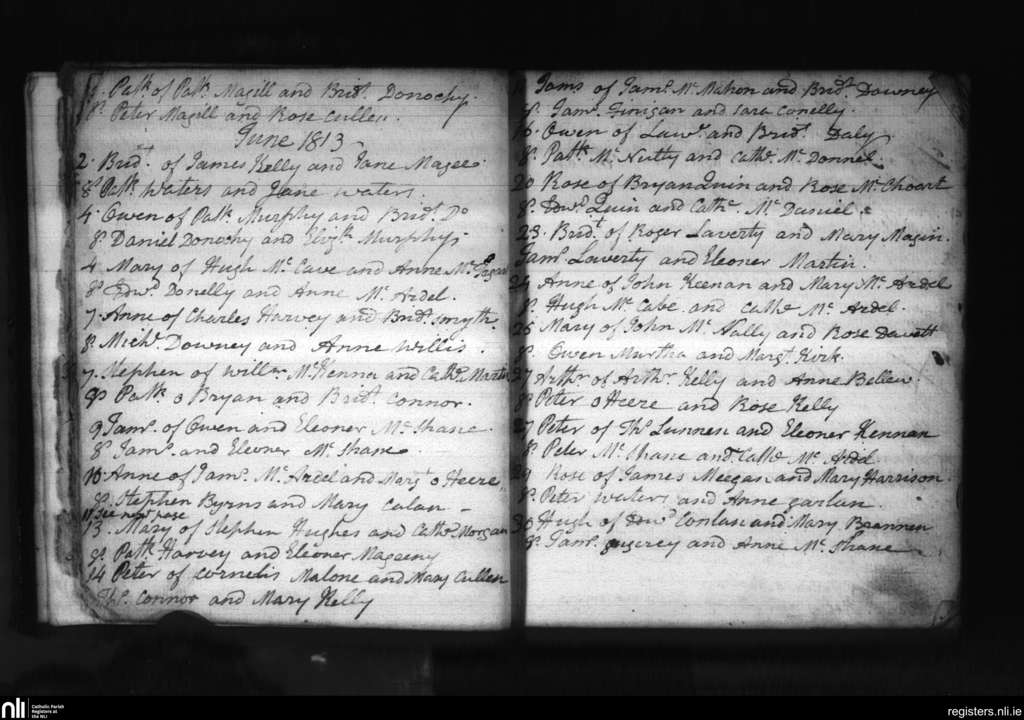 Patk. of Patk. Magill and Bridt. Donochy.
Sp. Peter Magill and Rose Cullen.
June 1813
2. Bridt. of James Kelly and Jane Magee
Sp. Patk. Waters and Jane Waters.
4. Owen of Patk. Murphy and Bridt. Do
Sp. Daniel Donochy and Elizth. Murphy
4 Mary of Hugh Mc Cave and Anne Mc
Sp. Edwd. Donelly and Anne Mc Ardel.
7. Anne of Charles Harvey and Bridt. Smyth
Sp. Michl. Downey and Anne Willis.
7. Stephen of Willm. McKenna and Cathe. Martin
Sp. Patk. o Bryan and Bridt. Connor.
9 Jams. of Owen and Eleoner Mc Shane.
Sp. Jams. and Eleoner Mc Shane.
10. Anne of Jams. Mc Ardel and Margt. o Heere
Sp. Stephen Byrns and Mary Calan
See next page
13. Mary of Stephen Hughes and Cathe. Morgan
Sp. Patk. Harvey and Eleoner Mageeny
14 Peter of Cornelis Malone and Mary Cullen
Ths. Connor and Mary Kelly
Jams of Jams. Mc Mahon and Bridt. Downey
Sp. Jams. Finigan and Sara Conelly
16. Owen of Lawe. and Bridt. Daly
Sp. Patk. Mc Nulty and Cathe. Mc Donnel.
20 Rose of Bryan Quin and Rose Mc Choart
Sp. Edwd. Quin and Cathe. Mc Daniel
23. Bridt. of Roger Laverty and Mary Magin.
Jams. Laverty and Eleoner Martin.
24 Anne of John Keenan and Mary Mc Ardel
Sp. Hugh Mc Cabe and Cathe Mc Ardel.
25 Mary of John Mc Nally and Rose
Sp. Owen Murtha and Margt. Kirk.
27 Arthr. of Arthr. Kelly and Anne Bellew
Sp. Peter o Heere and Rose Kelly
27 Peter of Ths. Lunnen and Eleoner Kennan
Sp. Peter Mc Shane and Cathe Mc Ardel
29 Rose of James Meegan and Mary Harrison.
Sp. Peter Waters and Anne Garlan.
30 Hugh of Edwd. Conlan and Mary Brannen
Sp. Jams. and Anne Mc Shane
nli
Catholic Parish
Registers at
the NLI
registers.nli.ie